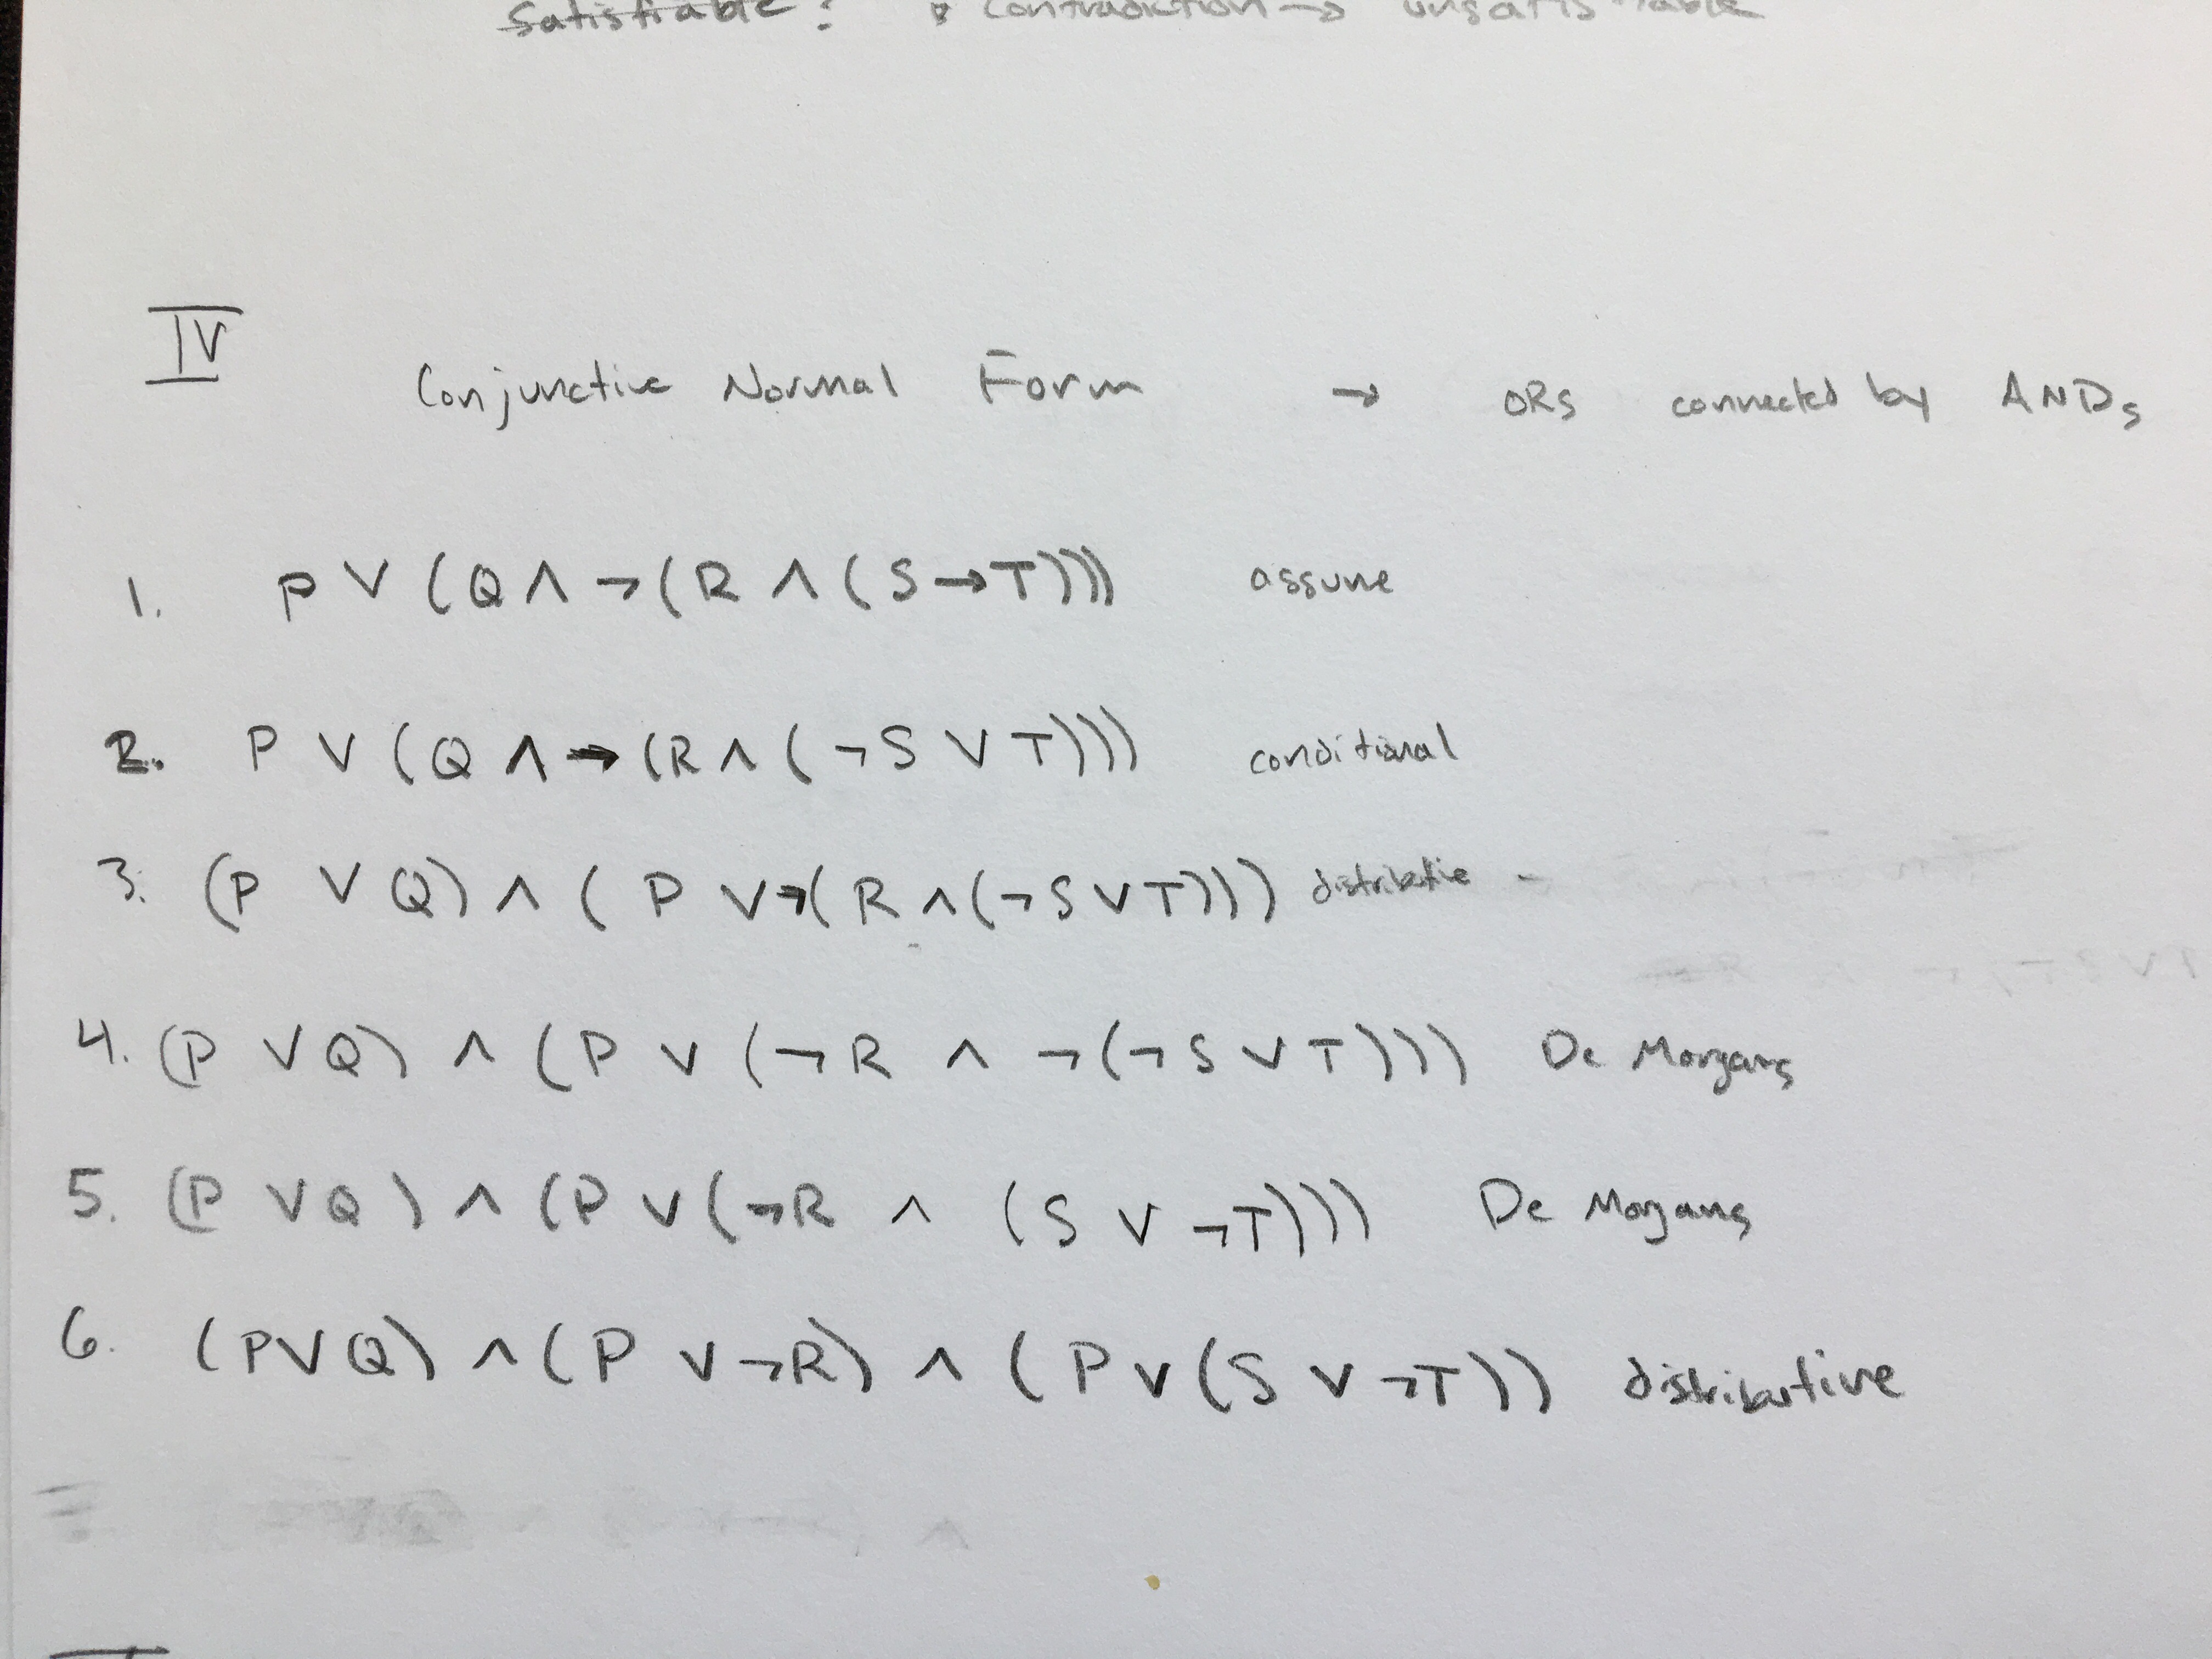 Satisfiable : a contradiction → unsatisfiable
IV Conjunctive Normal Form → ORs connected by ANDs
1. P ∨ (Q ∧ ¬(R ∧ (S → T))) assume
2. P ∨ (Q ∧ ¬(R ∧ (¬S ∨ T))) conditional
3. (P ∨ Q) ∧ (P ∨ ¬(R ∧ (¬S ∨ T))) distributive
4. (P ∨ Q) ∧ (P ∨ (¬R ∧ ¬(¬S ∨ T))) De Morgans
5. (P ∨ Q) ∧ (P ∨ (¬R ∧ (S ∨ ¬T))) De Morgans
6. (P ∨ Q) ∧ (P ∨ ¬R) ∧ (P ∨ (S ∨ ¬T)) distributive